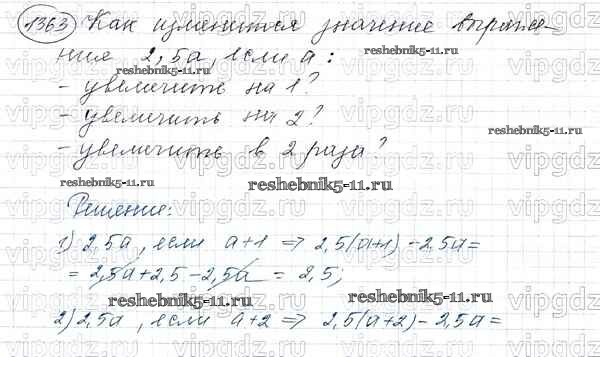 1363 Как изменится значение выраже-
ния 2,5a, если a:
- увеличить на 1?
- увеличить на 2?
- увеличить в 2 раза?
Решение:
1) 2,5a, если a+1 => 2,5(a+1) - 2,5a =
= 2,5a + 2,5 - 2,5a = 2,5;
2) 2,5a, если a+2 => 2,5(a+2) - 2,5a =
reshebnik5-11.ru
reshebnik5-11.ru
reshebnik5-11.ru
reshebnik5-11.ru
reshebnik5-11.ru
reshebnik5-11.ru
reshebnik5-11.ru
reshebnik5-11.ru
vipgdz vipgdz vipgdz vipgdz